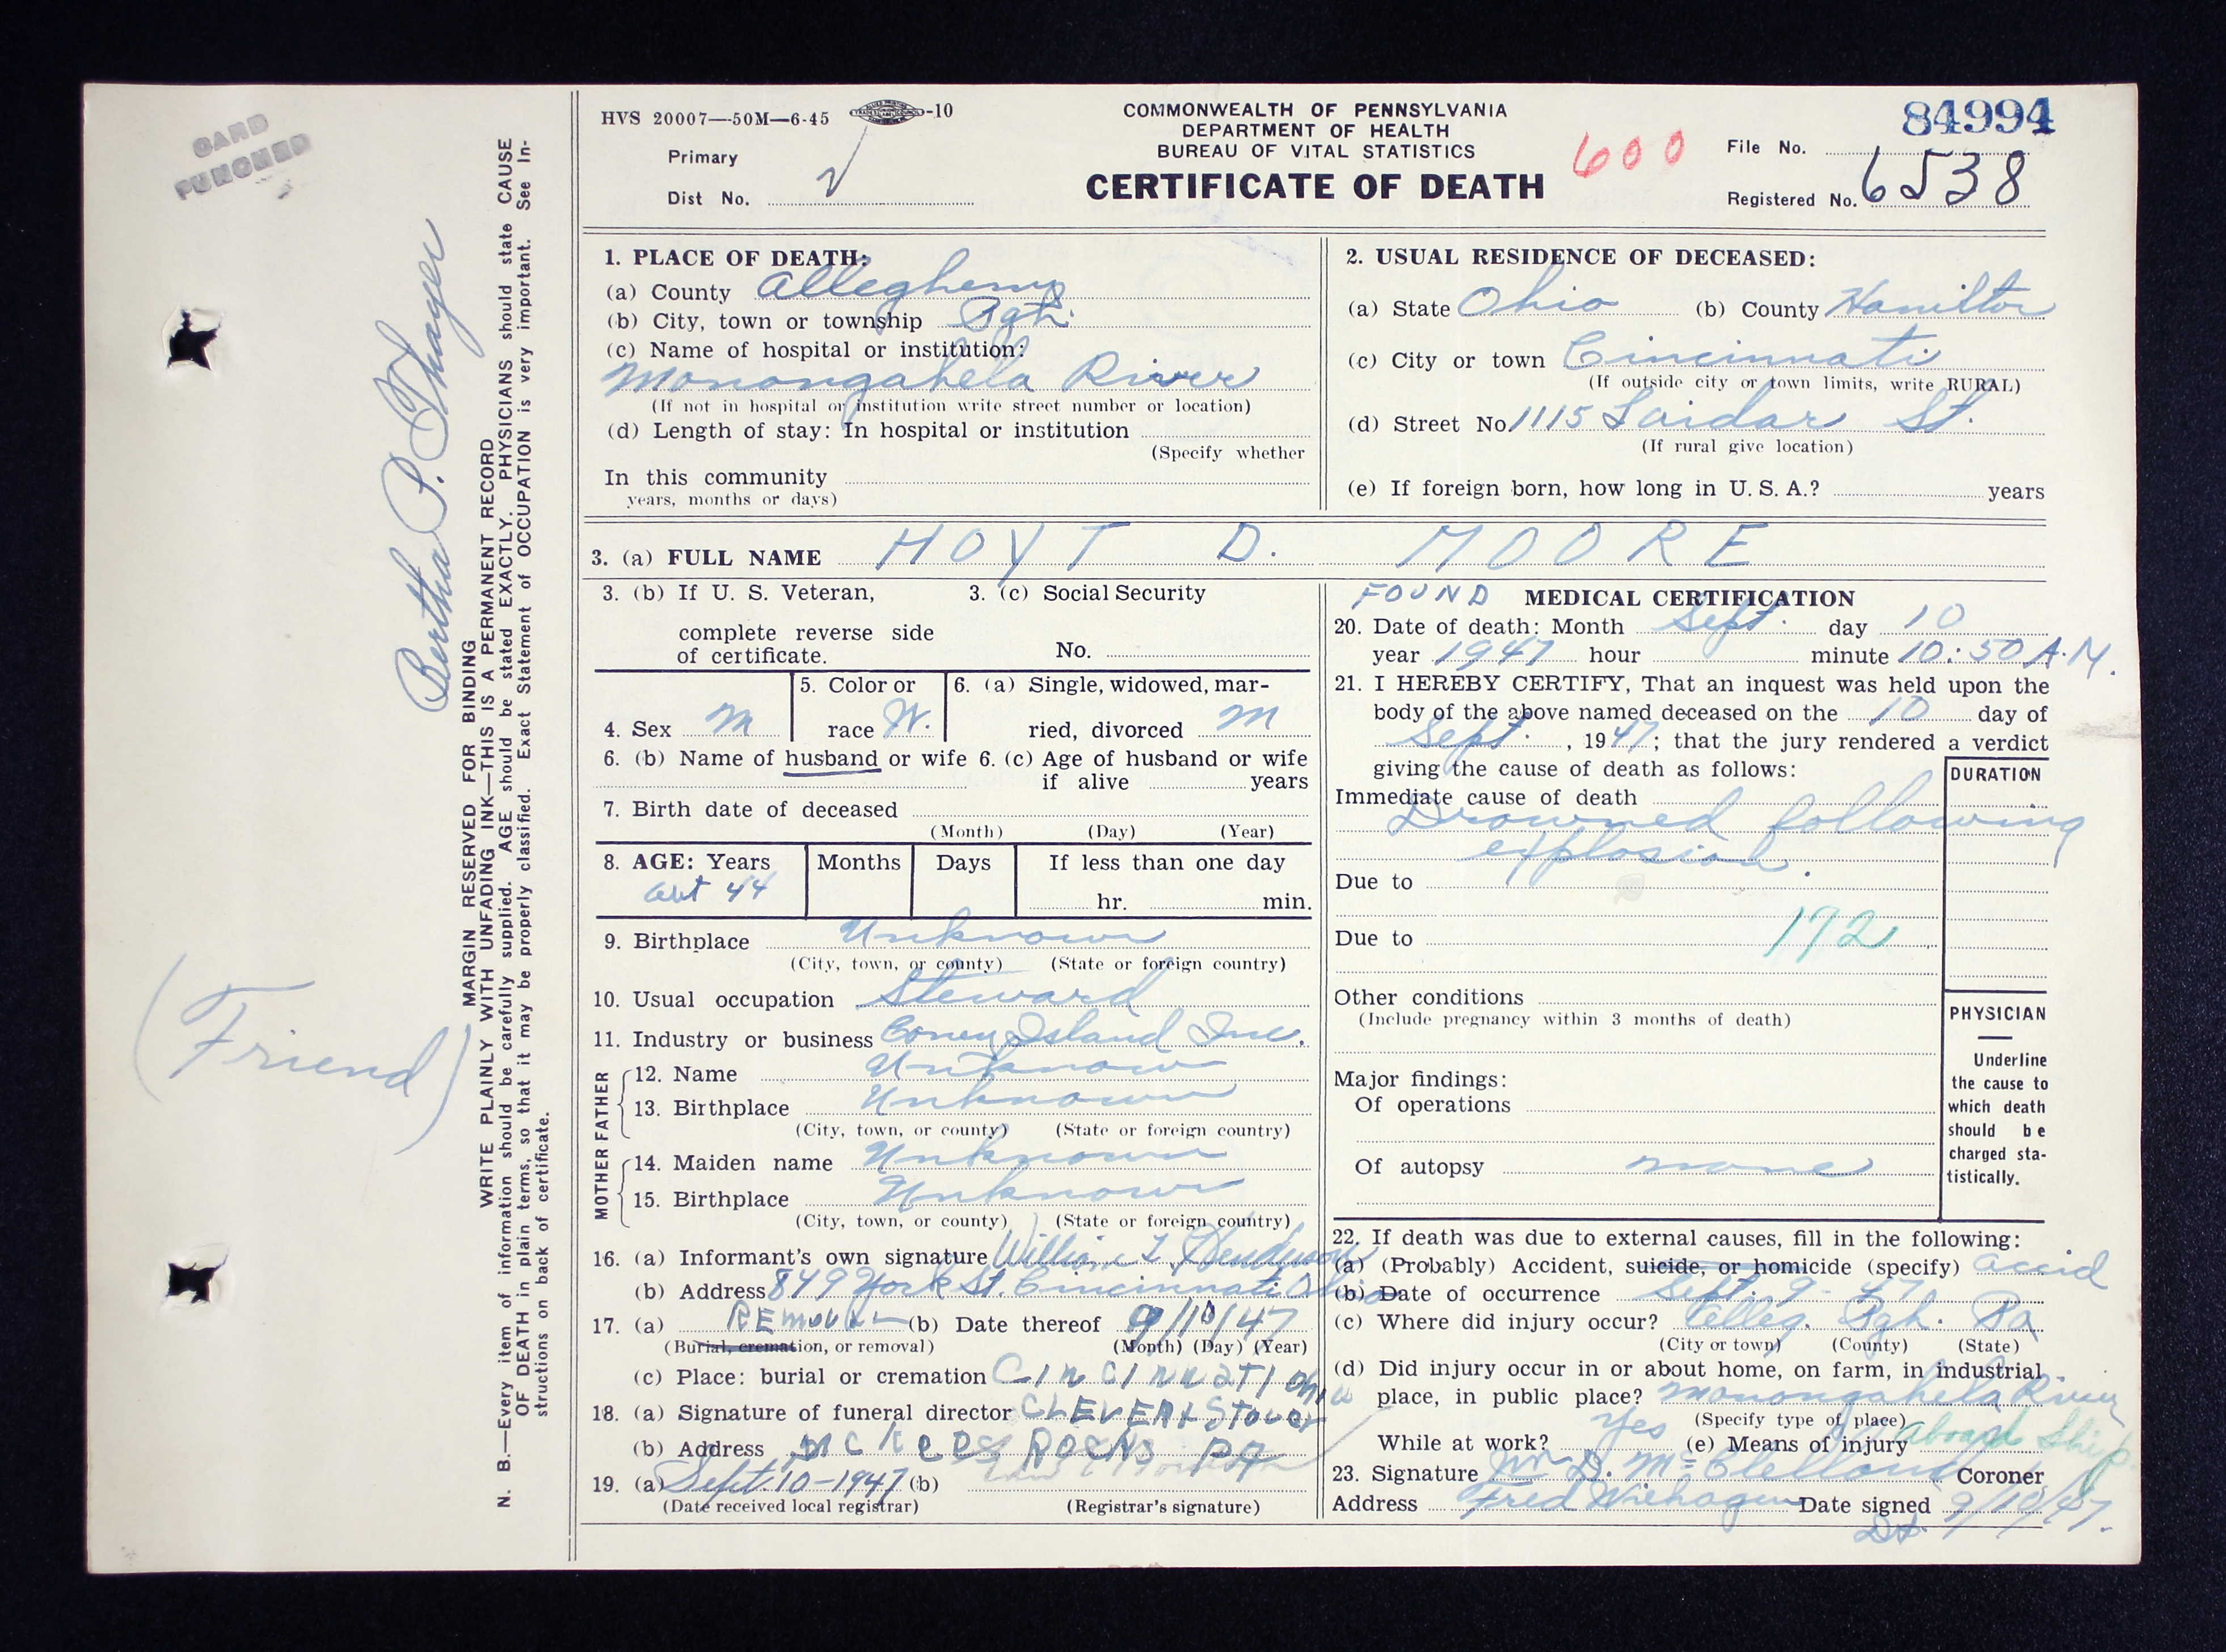 CARD
PUNCHED
Bertha P. Thayer
(Friend)
MARGIN RESERVED FOR BINDING
WRITE PLAINLY WITH UNFADING INK—THIS IS A PERMANENT RECORD
N. B.—Every item of information should be carefully supplied. AGE should be stated EXACTLY. PHYSICIANS should state CAUSE
OF DEATH in plain terms, so that it may be properly classified. Exact Statement of OCCUPATION is very important. See In-
structions on back of certificate.
HVS 20007—50M—6-45 -10
Primary
Dist No.
COMMONWEALTH OF PENNSYLVANIA
DEPARTMENT OF HEALTH
BUREAU OF VITAL STATISTICS
CERTIFICATE OF DEATH
600
84994
File No.
Registered No. 6538
1. PLACE OF DEATH:
(a) County Allegheny
(b) City, town or township Pgh.
(c) Name of hospital or institution:
Monongahela River
(If not in hospital or institution write street number or location)
(d) Length of stay: In hospital or institution
(Specify whether
In this community
years, months or days)
2. USUAL RESIDENCE OF DECEASED:
(a) State Ohio (b) County Hamilton
(c) City or town Cincinnati
(If outside city or town limits, write RURAL)
(d) Street No. 1115 St.
(If rural give location)
(e) If foreign born, how long in U. S. A.? years
3. (a) FULL NAME HOYT D. MOORE
3. (b) If U. S. Veteran,
complete reverse side
of certificate.
3. (c) Social Security
No.
4. Sex M
5. Color or
race W.
6. (a) Single, widowed, mar-
ried, divorced M
6. (b) Name of husband or wife 6. (c) Age of husband or wife
if alive years
7. Birth date of deceased
(Month) (Day) (Year)
8. AGE: Years Months Days If less than one day
44 hr. min.
9. Birthplace Unknown
(City, town, or county) (State or foreign country)
10. Usual occupation Steward
11. Industry or business Coney Island Inc.
FATHER
12. Name Unknown
13. Birthplace Unknown
(City, town, or county) (State or foreign country)
MOTHER
14. Maiden name Unknown
15. Birthplace Unknown
(City, town, or county) (State or foreign country)
16. (a) Informant's own signature William L
(b) Address 849 York St. Cincinnati Ohio
17. (a) REMOVAL (b) Date thereof 9/10/47
(Burial, cremation, or removal) (Month) (Day) (Year)
(c) Place: burial or cremation CINCINNATI Ohio
18. (a) Signature of funeral director
(b) Address MCKEES ROCKS PA
19. (a) Sept. 10-1947 (b)
(Date received local registrar) (Registrar's signature)
FOUND MEDICAL CERTIFICATION
20. Date of death: Month Sept. day 10
year 1947 hour minute 10:50 A.M.
21. I HEREBY CERTIFY, That an inquest was held upon the
body of the above named deceased on the 10 day of
Sept., 1947; that the jury rendered a verdict
giving the cause of death as follows:
DURATION
Immediate cause of death
Drowned following
explosion.
Due to
Due to 192
Other conditions
(Include pregnancy within 3 months of death)
Major findings:
Of operations
Of autopsy none
PHYSICIAN
Underline
the cause to
which death
should be
charged sta-
tistically.
22. If death was due to external causes, fill in the following:
(a) (Probably) Accident, suicide, or homicide (specify) accid
(b) Date of occurrence Sept. 9-47
(c) Where did injury occur? Alleg. Pgh. Pa
(City or town) (County) (State)
(d) Did injury occur in or about home, on farm, in industrial
place, in public place? Monongahela River
(Specify type of place)
While at work? Yes (e) Means of injury aboard ship
23. Signature Wm D. McClelland Coroner
Address Fred Date signed 9/10/47.